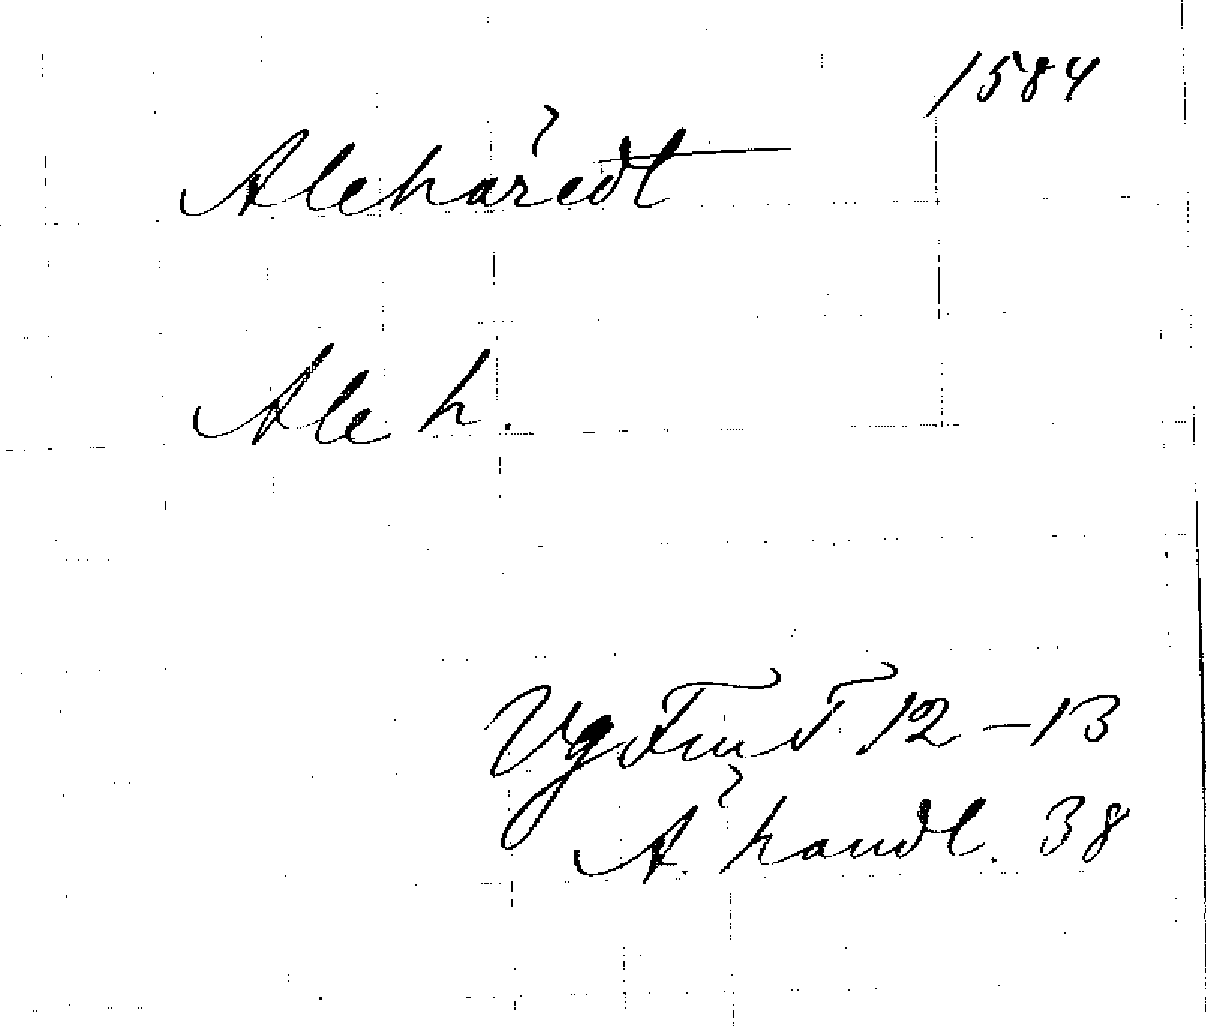 1584
Alehäredt
Ale h.
Vg Fm T. 12–13
Ä. handl. 38